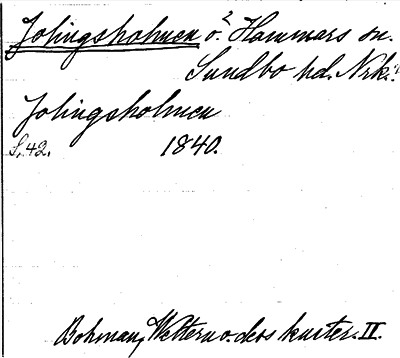 Jolingsholmen ö.² Hammars sn.
Sundbo hd. Nrk.
Jolingsholmen
S. 42. 1840.
Bohman, Wettern o. dess kuster. II.